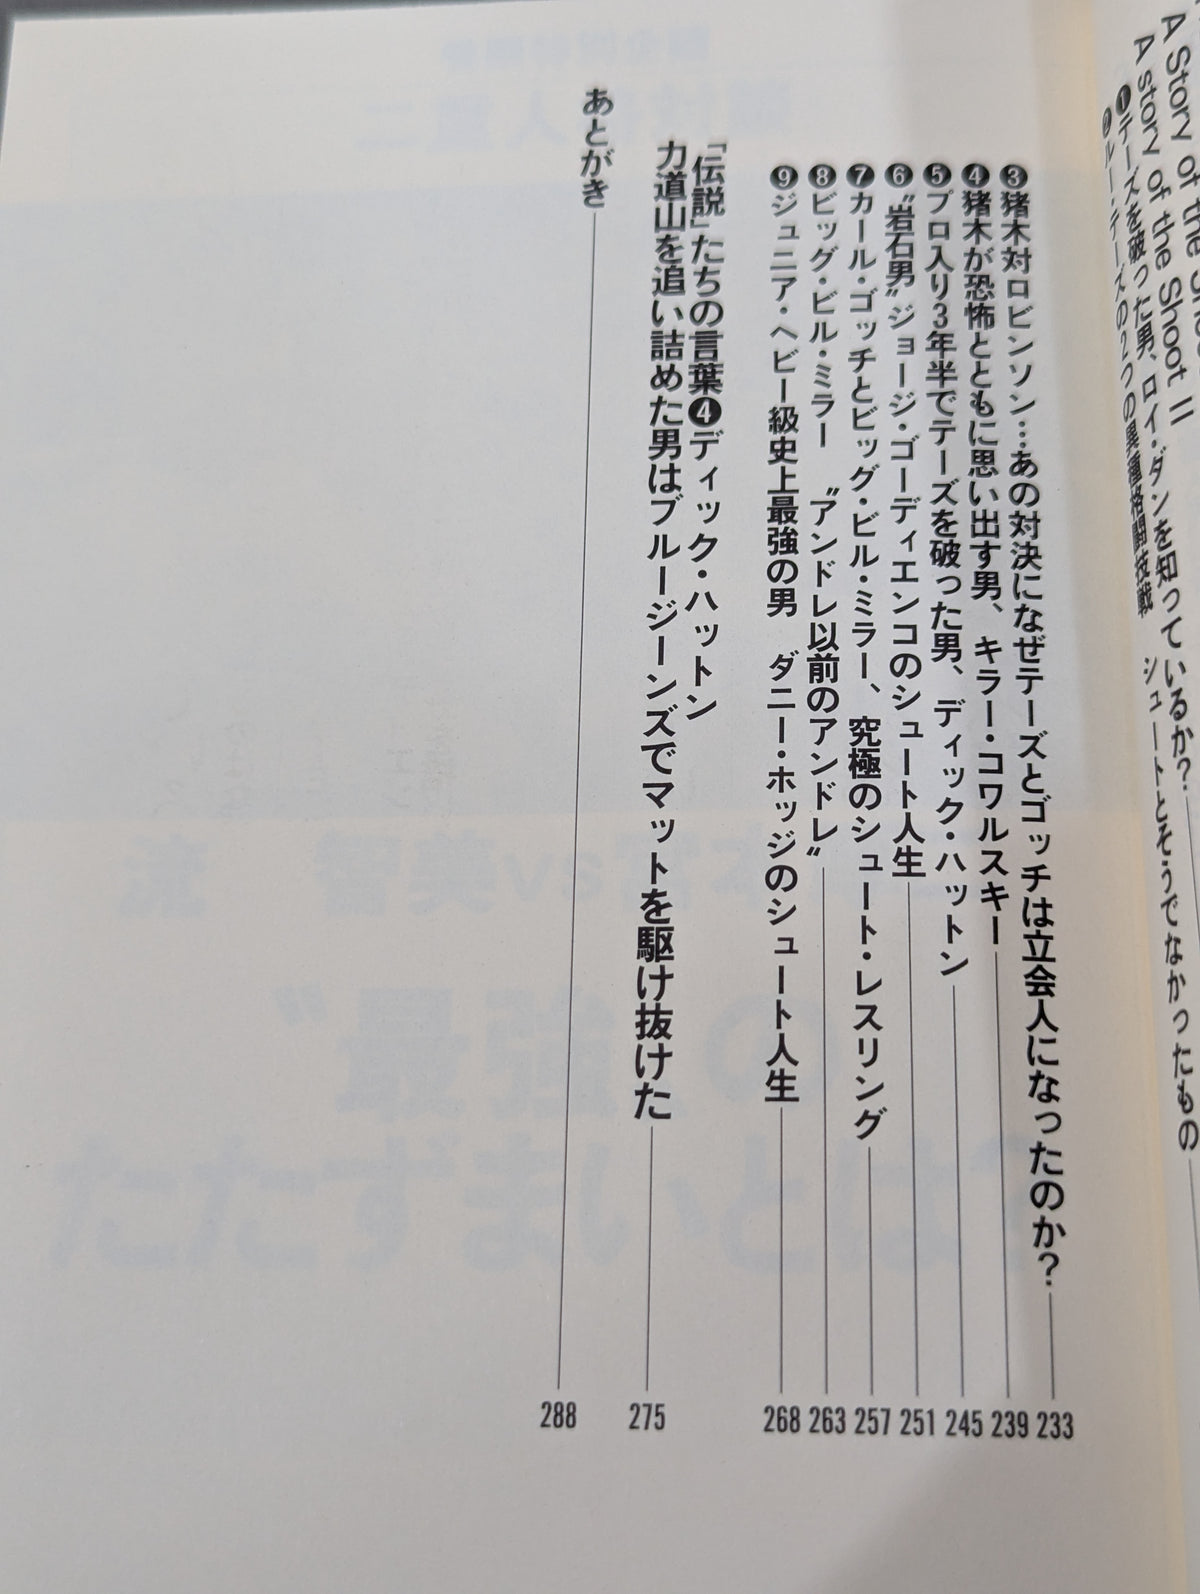 A Story of the Shoot II
A story of the Shoot
❶テーズを破った男、ロイ・ダンを知っているか?
❷ルー・テーズの2つの異種格闘技戦 シュートとそうでなかったもの
❸猪木対ロビンソン…あの対決になぜテーズとゴッチは立会人になったのか? 233
❹猪木が恐怖とともに思い出す男、キラー・コワルスキー 239
❺プロ入り3年半でテーズを破った男、ディック・ハットン 245
❻〝岩石男〟ジョージ・ゴーディエンコのシュート人生 251
❼カール・ゴッチとビッグ・ビル・ミラー、究極のシュート・レスリング 257
❽ビッグ・ビル・ミラー 〝アンドレ以前のアンドレ〟 263
❾ジュニア・ヘビー級史上最強の男 ダニー・ホッジのシュート人生 268
「伝説」たちの言葉❹ディック・ハットン
力道山を追い詰めた男はブルージーンズでマットを駆け抜けた 275
あとがき 288